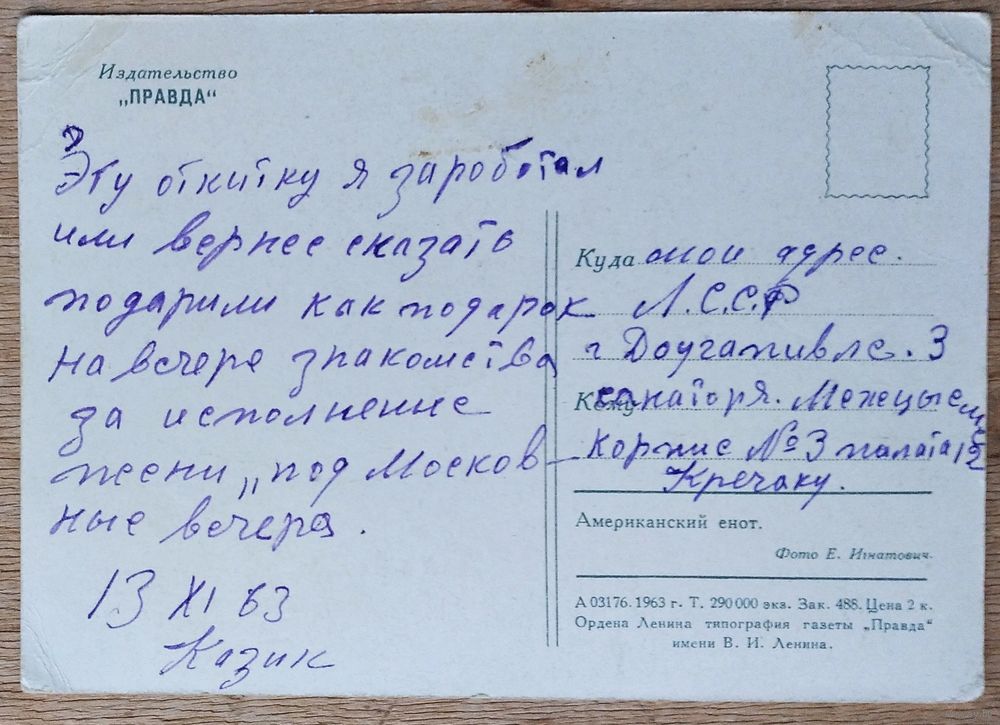 Издательство
„ПРАВДА“
Эту откитку я зароботал
или вернее сказать
подарили как подарок
на вечере знакомства
за исполнение
песни „под Москов-
ные вечера.
13 XI 63
Казик
Куда мои адрес.
Л.С.С.Р
г Доугапивлс. 3
Кому санаторя. Межецыемс
корпис №3 палата 12
Кречаку.
Американский енот.
Фото Е. Игнатович.
А 03176. 1963 г. Т. 290 000 экз. Зак. 488. Цена 2 к.
Ордена Ленина типография газеты „Правда“
имени В. И. Ленина.